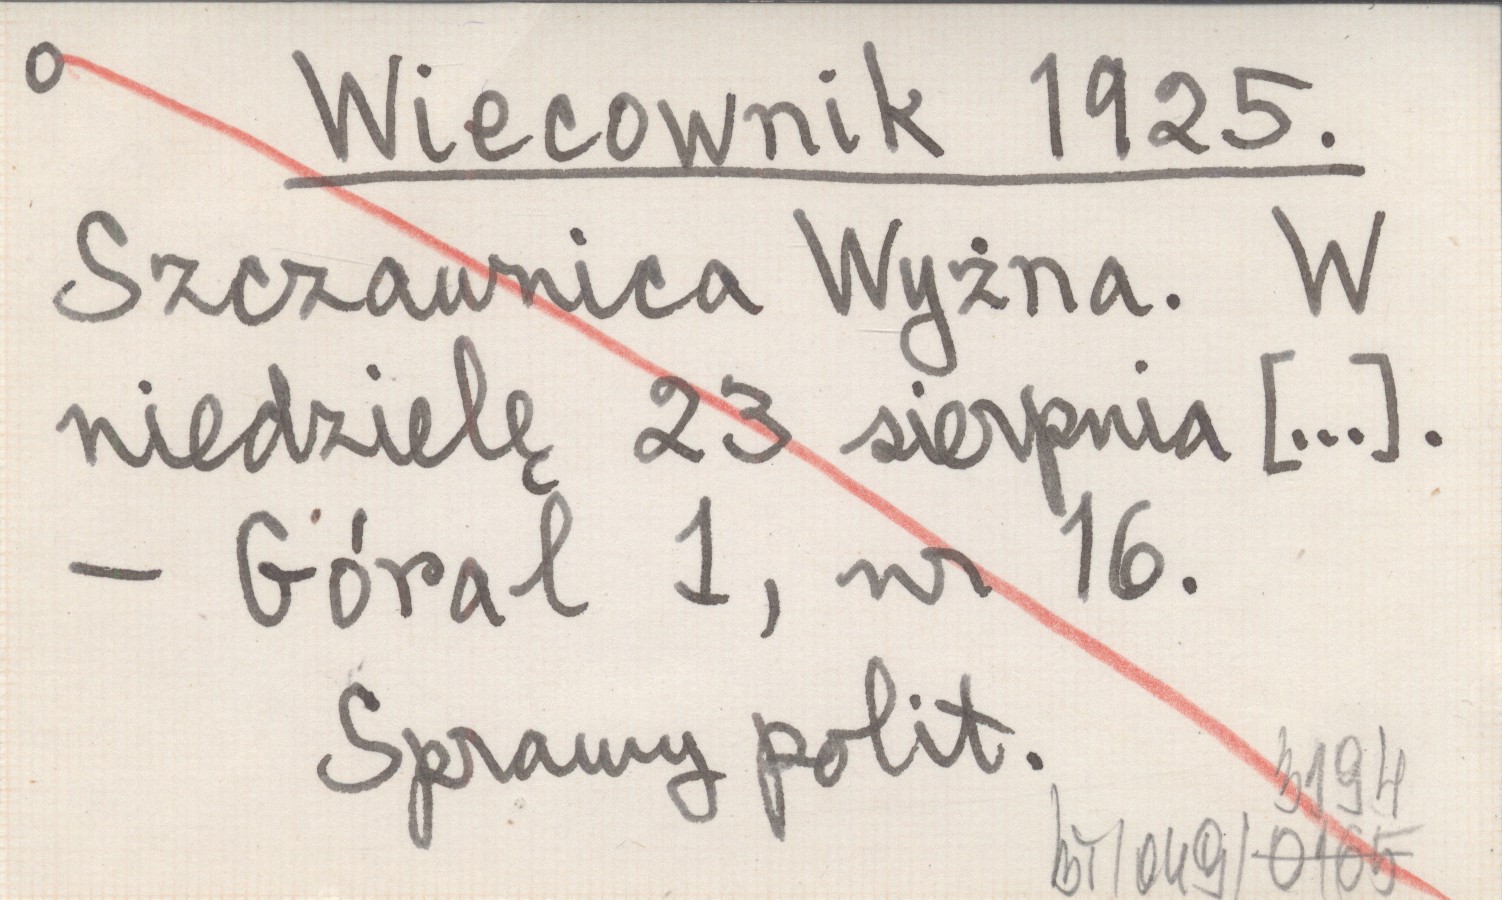 o Wiecownik 1925.
Szczawnica Wyżna. W
niedzielę 23 sierpnia [...].
— Góral 1, nr 16.
Sprawy polit.